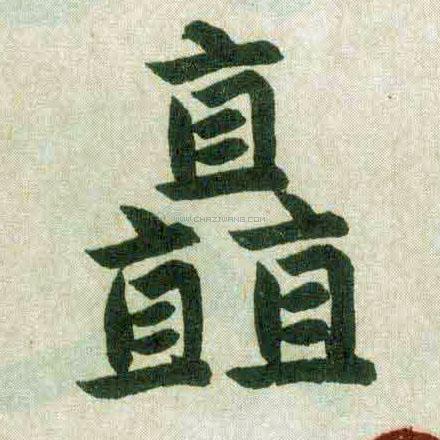 矗
WWW.CHAZIWANG.COM